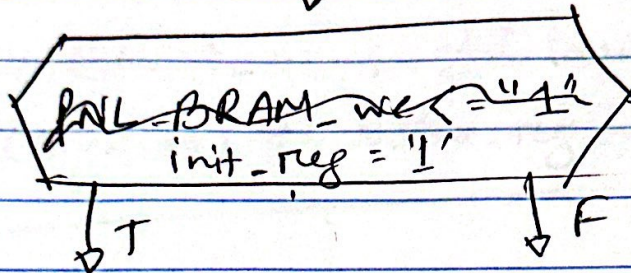 PNL_BRAM_we <= "1"
init_reg = '1'
T
F